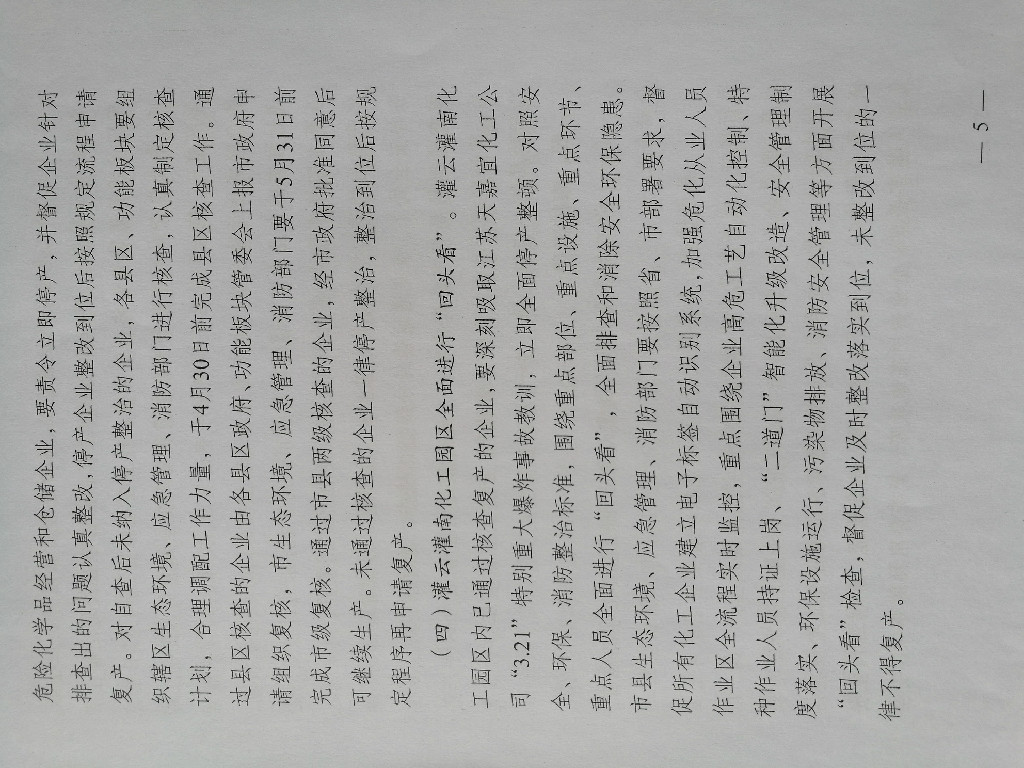 危险化学品经营和仓储企业，要责令立即停产，并督促企业针对
排查出的问题认真整改，停产企业整改到位后按照规定流程申请
复产。对自查后未纳入停产整治的企业，各县区、功能板块要组
织辖区生态环境、应急管理、消防部门进行核查，认真制定核查
计划，合理调配工作力量，于4月30日前完成县区核查工作。通
过县区核查的企业由各县区政府、功能板块管委会上报市政府申
请组织复核，市生态环境、应急管理、消防部门要于5月31日前
完成市级复核。通过市县两级核查的企业，经市政府批准同意后
可继续生产。未通过核查的企业一律停产整治，整治到位后按规
定程序再申请复产。
（四）灌云灌南化工园区全面进行“回头看”。灌云灌南化
工园区内已通过核查复产的企业，要深刻吸取江苏天嘉宜化工公
司“3.21”特别重大爆炸事故教训，立即全面停产整顿。对照安
全、环保、消防整治标准，围绕重点部位、重点设施、重点环节、
重点人员全面进行“回头看”，全面排查和消除安全环保隐患。
市县生态环境、应急管理、消防部门要按照省、市部署要求，督
促所有化工企业建立电子标签自动识别系统，加强危化从业人员
作业区全流程实时监控，重点围绕企业高危工艺自动化控制、特
种作业人员持证上岗、“二道门”智能化升级改造、安全管理制
度落实、环保设施运行、污染物排放、消防安全管理等方面开展
“回头看”检查，督促企业及时整改落实到位，未整改到位的一
律不得复产。
— 5 —